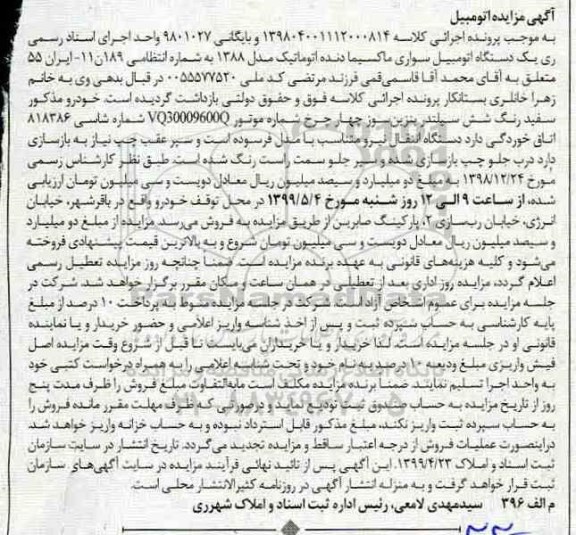 آگهی مزایده اتومبیل
به موجب پرونده اجرائی کلاسه ۱۳۹۸۰۴۰۰۱۱۱۲۰۰۰۸۱۴ و بایگانی ۹۸۰۱۰۲۷ واحد اجرای اسناد رسمی
ری یک دستگاه اتومبیل سواری ماکسیما دنده اتوماتیک مدل ۱۳۸۸ به شماره انتظامی ۱۸۹ن۱۱-ایران ۵۵
متعلق به آقای محمد آقا قاسمی‌قمی فرزند مرتضی کد ملی ۰۰۵۵۵۷۷۵۲۰ در قبال بدهی وی به خانم
زهرا خانلری بستانکار پرونده اجرائی کلاسه فوق و حقوق دولتی بازداشت گردیده است. خودرو مذکور
سفید رنگ شش سیلندر بنزین‌سوز چهار چرخ شماره موتور VQ30009600Q شماره شاسی ۸۱۸۳۸۶
اتاق خوردگی دارد دستگاه انتقال نیرو متناسب با مدل فرسوده است و سپر عقب چپ نیاز به بازسازی
دارد درب جلو چپ بازسازی شده و سپر جلو سمت راست رنگ شده است. طبق نظر کارشناس رسمی
مورخ ۱۳۹۸/۱۲/۲۴ به مبلغ دو میلیارد و سیصد میلیون ریال معادل دویست و سی میلیون تومان ارزیابی
شده، از ساعت ۹ الی ۱۲ روز شنبه مورخ ۱۳۹۹/۵/۴ در محل توقف خودرو واقع در باقرشهر، خیابان
انرژی، خیابان رب‌سازی ۲، پارکینگ صابرین از طریق مزایده به فروش می‌رسد. مزایده از مبلغ دو میلیارد
و سیصد میلیون ریال معادل دویست و سی میلیون تومان شروع و به بالاترین قیمت پیشنهادی فروخته
می‌شود و کلیه هزینه‌های قانونی به عهده برنده مزایده است. ضمناً چنانچه روز مزایده تعطیل رسمی
اعلام گردد، مزایده روز اداری بعد از تعطیلی در همان ساعت و مکان مقرر برگزار خواهد شد. شرکت در
جلسه مزایده برای عموم اشخاص آزاد است. شرکت در جلسه مزایده منوط به پرداخت ۱۰ درصد از مبلغ
پایه کارشناسی به حساب سپرده ثبت و پس از اخذ شناسه واریز اعلامی و حضور خریدار و یا نماینده
قانونی او در جلسه مزایده است. لذا خریدار و یا خریداران می‌بایست تا قبل از شروع وقت مزایده اصل
فیش واریزی مبلغ ودیعه ۱۰ درصد به نام خود و تحت شناسه اعلامی را به همراه درخواست کتبی خود
به واحد اجرا تسلیم نمایند. ضمناً برنده مزایده مکلف است مابه‌التفاوت مبلغ فروش را ظرف مدت پنج
روز از تاریخ مزایده به حساب صندوق ثبت تودیع نماید و درصورتی که ظرف مهلت مقرر مانده فروش را
به حساب سپرده ثبت واریز نکند، مبلغ مذکور قابل استرداد نبوده و به حساب خزانه واریز خواهد شد
دراینصورت عملیات فروش از درجه اعتبار ساقط و مزایده تجدید می‌گردد. تاریخ انتشار در سایت سازمان
ثبت اسناد و املاک ۱۳۹۹/۴/۲۳. این آگهی پس از تائید نهائی فرآیند مزایده در سایت آگهی‌های سازمان
ثبت قرار خواهد گرفت و به منزله انتشار آگهی در روزنامه کثیرالانتشار محلی است.
م الف ۳۹۶ سیدمهدی لامعی، رئیس اداره ثبت اسناد و املاک شهرری